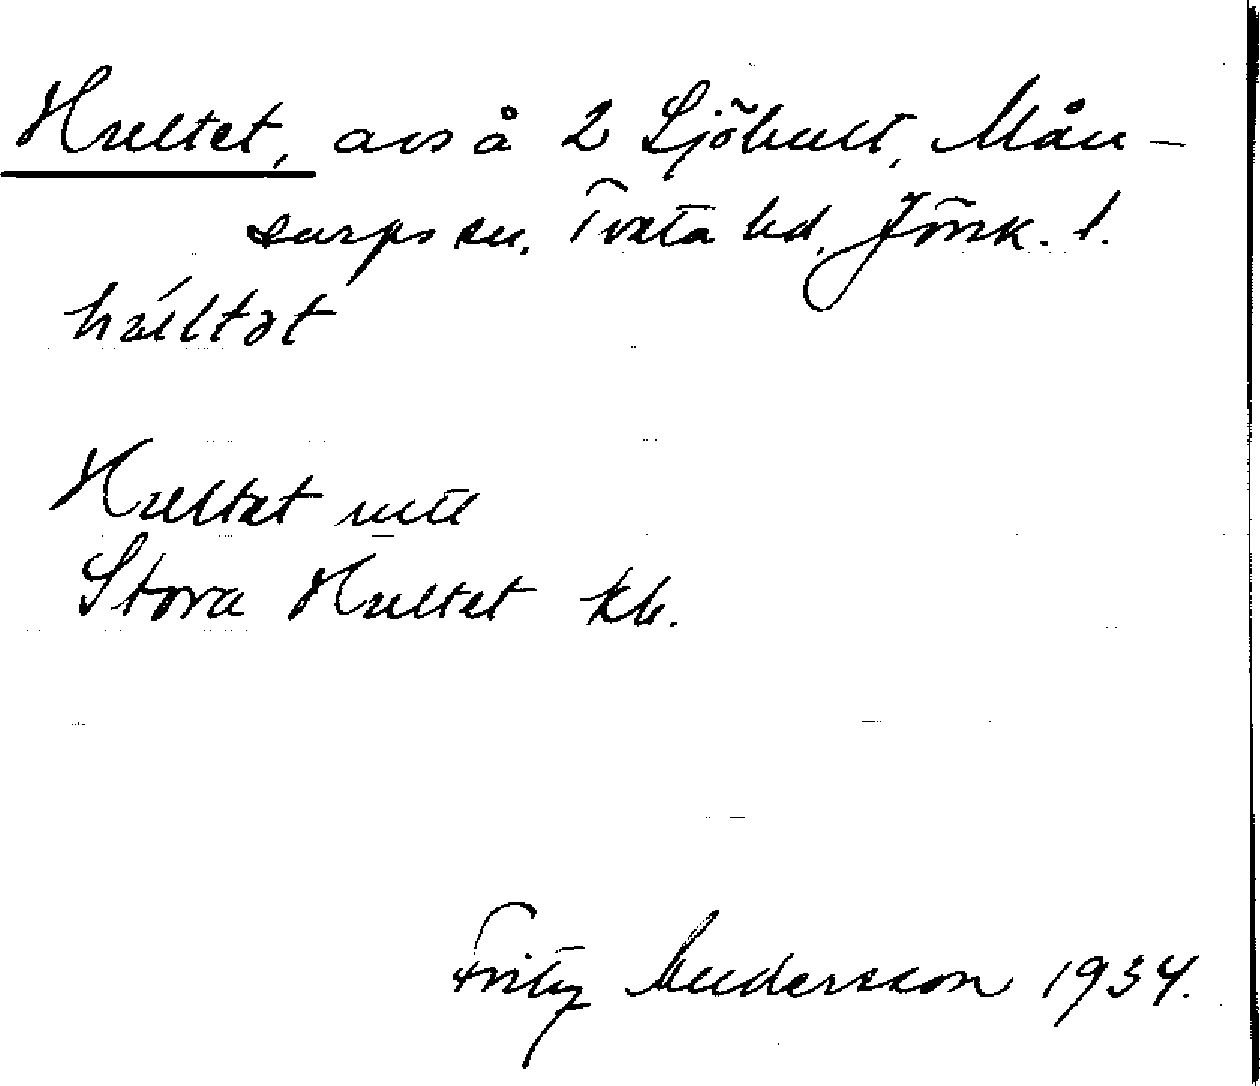 Hultet, avs å 2 Sjöhult, Mån-
sarps sn. Tveta hd, Jönk. l.
húltət
Hultet uttl
Stora Hultet kb.
Fritz Andersson 1934.